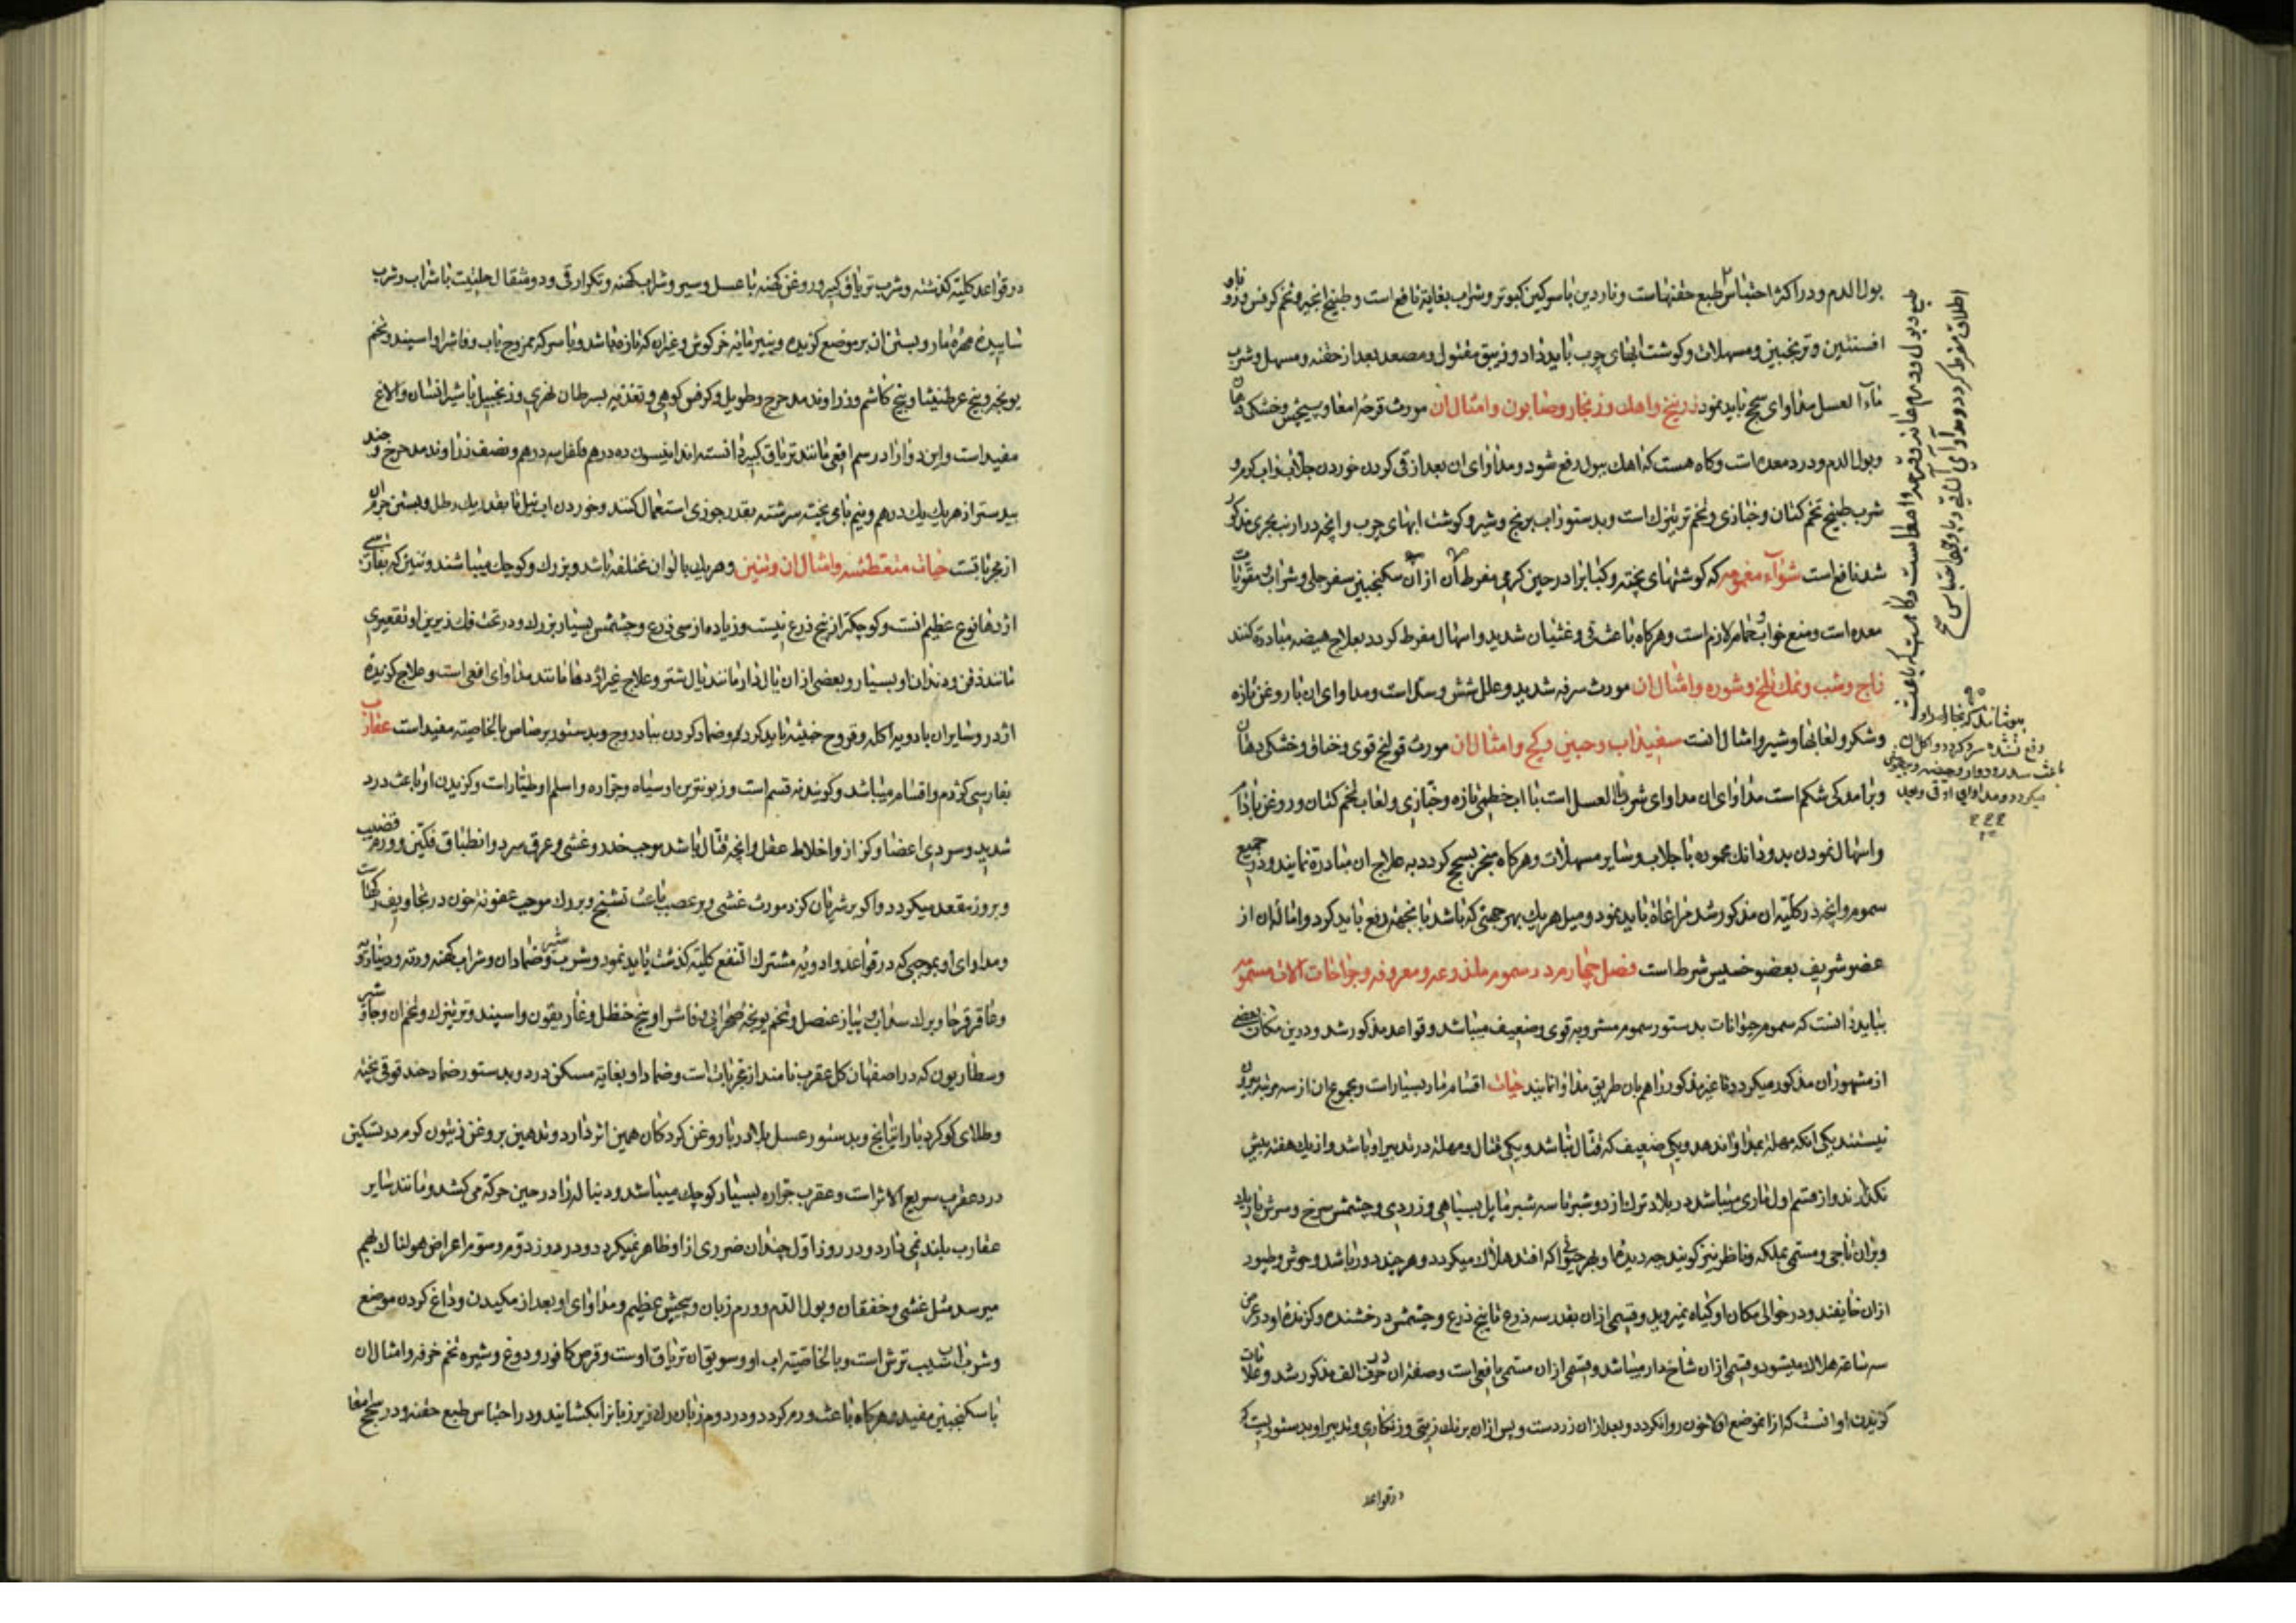 بول الدم و در اکثر احتباس طبع حقنهاست و ناردین با سرکین کبوتر و شراب بغایة نافع است و طبیخ انجیر و تخم کرفس و
افسنتین و ترنجبین و مسهلات و کوشت ابهای چرب باید داد و زیبق مقتول و مصعد بعد از حقنه و مسهل و شرب
ماء العسل مداوای سحج باید نمود زرنیخ واهك و زنجار و صابون و امثال ان مورث قرحهٔ امعا و پیچش و خشکی
و بول الدم و درد معده است و کاه هست که اهك ببول رفع شود و مداوای ان بعد از قی کردن خوردن جلاب و اب کرم و
شرب طبیخ تخم کتان و خبازی و تخم ترتیزك است و بدستور اب برنج و شیر و کوشت ابهای چرب و انچه در ارنب بحری مذکور
شد نافع است شوآء مغموم که کوشتهای پخته و کبابرا در حین کرمی مفرط ان از ان سکنجبین سفرجلی و شراب
معده است و منع خواب و حمام لازم است و هرکاه باعث قی و غثیان شدید و اسهال مفرط کردد بعلاج هیضه مبادرة کنند
زاج و شب و نمك تلخ و شوره و امثال ان مورث سرفه شدید و علل شش و سل است و مداوای ان با روغن تازه
و شکر و لعابها و شیر و امثال انست سفیداب و جبسین و کج و امثال ان مورث قولنج قوی و خناق و خشکی دهان
و برامدکی شکم است مداوای ان مداوای شرب ماء العسل است با اب خطمی تازه و خبازی و لعاب تخم کتان و روغن بادام
و اسهال نمودن بدو دانك محموده با جلاب و سایر مسهلات و هرکاه منجر بسحج کردد به علاج ان مبادرة نمایند و در جمیع
سموم و انچه در کلیه ان مذکور شد مراعاة باید نمود و میل هر یك بهر جهتی که باشد بانجهته رفع باید کرد و امالهٔ ان از
عضو شریف بعضو خسیس شرط است فصل چهارم در سموم ملذوعه و معروفه و جراحات الات مسموم
بباید دانست که سموم حیوانات بدستور سموم مشروبه قوی و ضعیف میباشد و قواعد مذکور شد و درین مکان بعضی
از مشهوران مذکور میکردد تا غیر مذکور را هم بان طریق مداوا نمایند حیات اقسام مار بسیارات و مجموع ان از سه مرتبه بیرون
نیستند یکی انکه مهلة بمداوا ندهد و یکی ضعیف که قتال نباشد و یکی قتال و مهلة در تدبیر او باشد و از یك هفته بیش
نکذارند و از قسم اول ماری میباشد در بلاد ترك از دو شبر تا سه شبر مایل بسیاهی و زردی و چشمش سرخ و سرش باریك
و بران تاجی و مسمی بملکه و ناظر نیز کویند چه دیدن او بهر حیوانی که افتد هلاك میکردد و هر چند دور باشد وحوش و طیور
ازان خایفند و در حوالی مکان او کیاه نمیروید و قسمی ازان بقدر سه ذرع تا پنج ذرع و چشمش درخشنده و کزنده او در عرض
سه ساعة هلاك میشود و قسمی ازان شاخ دار میباشد و قسمی ازان مسمی بافعی است و صفة ان در حرف الف مذکور شد و علامات
کزیدن او انست که ازان موضع اولا خون روان کردد و بعد ازان زرد است و پس ازان برنك زیتی و زنکاری و تدبیر او بدستوریست که
در قواعد
در قواعد کلیه کذشته و شرب تریاق کبیر و روغن کهنه با عسل و سیر و شراب کهنه و تکرار قی و دو مثقال حلتیت با شراب و شرب
ساییدهٔ مهرهٔ مار و بستن ان بر موضع کزیده و پنیر مایه خرکوش و غیران که تازه باشد و با سرکه ممزوج باب و فاشرا و اسپند و تخم
یونجه و بیخ عرطنیثا و بیخ کاشم و زراوند مدحرج و طویل و کرفس کوهی و تغذیه بسرطان نهری و زنجبیل با شیر انسان و الاغ
مفید است و این دوا را در سم افعی مانند تریاق کبیر دانسته اند انیسون ده درهم فلفل سه درهم و نصف زراوند مدحرج و جند
بیدستر از هر یك یك درهم و نیم بای پخته سرشته بقدر جوزی استعمال کنند و خوردن اب نیل تا بقدر یك رطل و بستن جرم ان
از مجرباتست حیات متعطشه و امثال ان و تنین و هر یك بالوان مختلفه باشد و بزرك و کوچك میباشند و تنین که بفارسی
اژدها نوع عظیم انست و کوچکتر از پنج ذرع نیست و زیاده از سی ذرع و چشمش بسیار بزرك و در تحت فك زیرین او تقعیری
مانند ذقن و دندان او بسیار و بعضی ازان یال دار مانند یال شتر و علاج غیر اژدها مانند مداوای افعی است و علاج کزیدهٔ
اژدر و سایران بادویه اکله و قروح خبیثه باید کرد و ضماد کردن بباد روج و بدستور برصاص بالخاصیته مفید است عقارب
بفارسی کژدم و اقسام میباشد و کویند نه قسم است و زبونترین او سیاه و جراره و اسلم او طیارات و کزیدن او باعث درد
شدید و سردی اعضا و کزاز و اخلاط عقل و انچه قتال باشد موجب خدر و غشی و عرق سرد و انطباق فکین و ورم قضیب
و بروز مقعد میکردد و اکر بر شریان کزد مورث غشی و بر عصب باعث تشنج و برورك موجب عفونة خون در تجاویف رکهاست
و مداوای او بموجبی که در قواعد و ادویه مشترك النفع کلیه کذشت باید نمود و شرب و ضماد ان و شراب کهنه و
و عاقرقرحا و برك سداب و پیاز عنصل و تخم یونجه صحرایی و فاشرا و بیخ حنظل و غاریقون و اسپند و ترتیزك و تخم ان و جاوشیر
و سطاریون که در اصفهان کل عقرب نامند از مجربات است و ضماد او بغایة مسکن درد و بدستور ضماد حندقوقی پخته
و طلای کوکرد با راتیانج و بدستور عسل بلادر با روغن کردکان همین اثر دارد و تدهین بروغن زیتون کرم در تسکین
درد عقرب سریع الاثر است و عقرب جراره بسیار کوچك میباشد و دنباله را در حین حرکة می کشد و مانند سایر
عقارب بلند نمی دارد و در روز اول چندان ضرری ازو ظاهر نمیکردد و در روز دوم و سوم اعراض هولناك بهم
میرسد مثل غشی و خفقان و بول الدم و ورم زبان و پیچش عظیم و مداوای او بعد از مکیدن و داغ کردن موضع
و شرب اب سیب ترش است و بالخاصیته اب او و سویق ان تریاق اوست و قرص کافور و دوغ و شیره تخم خرفه و امثال ان
با سکنجبین مفید و هرکاه باعث ورم کردد و در ورم زبان رك زیر زبانرا بکشایند و در احتباس طبع حقنه و در سحج امعا